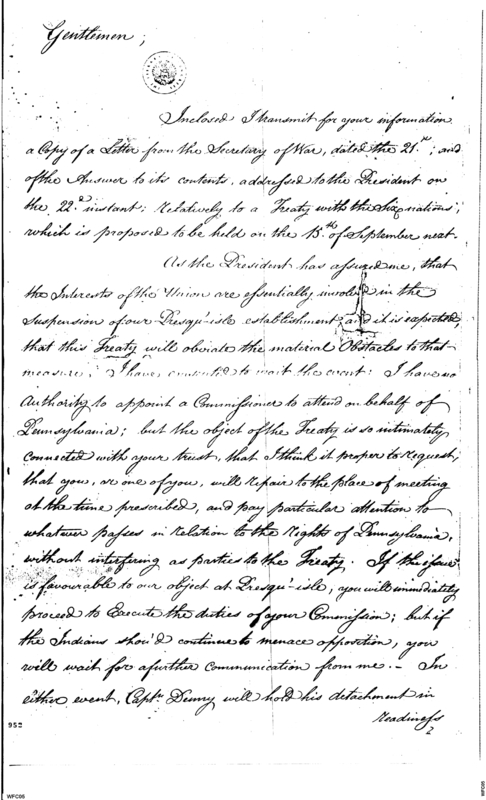 Gentlemen;
Inclosed I transmit for your information
a Copy of a Letter from the Secretary of War, dated the 21.st; and
of the Answer to its contents, addressed to the President on
the 22.d instant; relatively to a Treaty with the Six nations,
which is proposed to be held on the 15th of September next.
As the President has assured me, that
the Interests of the Union are essentially involved in the
Suspension of our Presqu'-isle establishment, and it is expected,
that this Treaty will obviate the material Obstacles to that
measure, I have consented to wait the event: I have no
Authority to appoint a Commissioner to attend on behalf of
Pennsylvania; but the object of the Treaty is so intimately
connected with your trust, that I think it proper to request,
that you, or one of you, will repair to the place of meeting
at the time prescribed, and pay particular attention to
whatever passes in relation to the rights of Pennsylvania,
without interfering as parties to the Treaty. If the issue
is favourable to our object at Presqu'-isle, you will immediately
proceed to Execute the duties of your Commission; but if
the Indians shou'd continue to menace opposition, you
will wait for a further communication from me. – In
either event, Captn. Denny will hold his detachment in
readiness
952
WFC06
WFC06